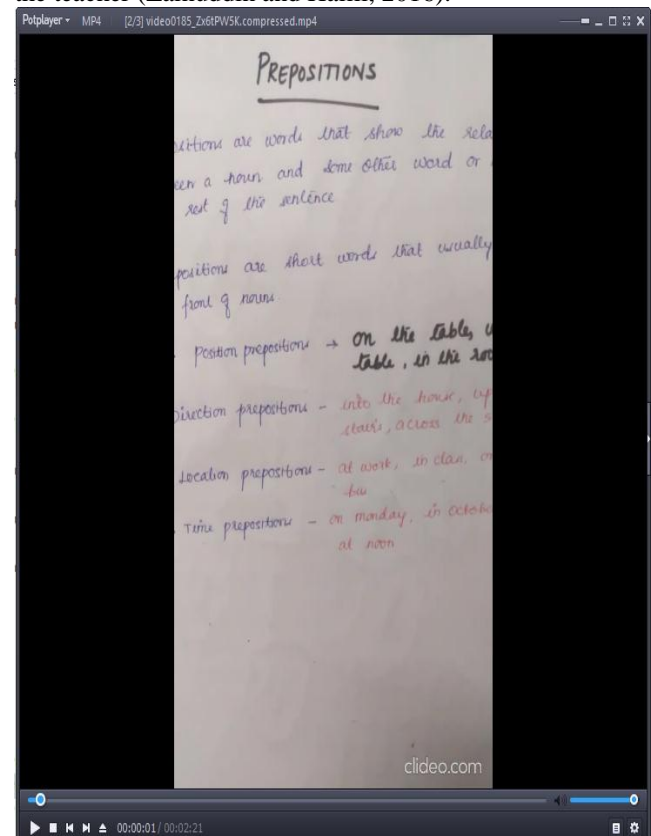 Potplayer MP4 [2/3] video0185_Zx6tPW5K.compressed.mp4
PREPOSITIONS
sitions are words that show the rela
een a noun and some other word or
rest of the sentence
positions are short words that usually
front of nouns
Position prepositions → on the table, u
table, in the roo
Direction prepositions - into the house, up
stairs, across the s
Location prepositions - at work, in class, on
bus
Time prepositions - on monday, in octobe
at noon
clideo.com
00:00:01 / 00:02:21